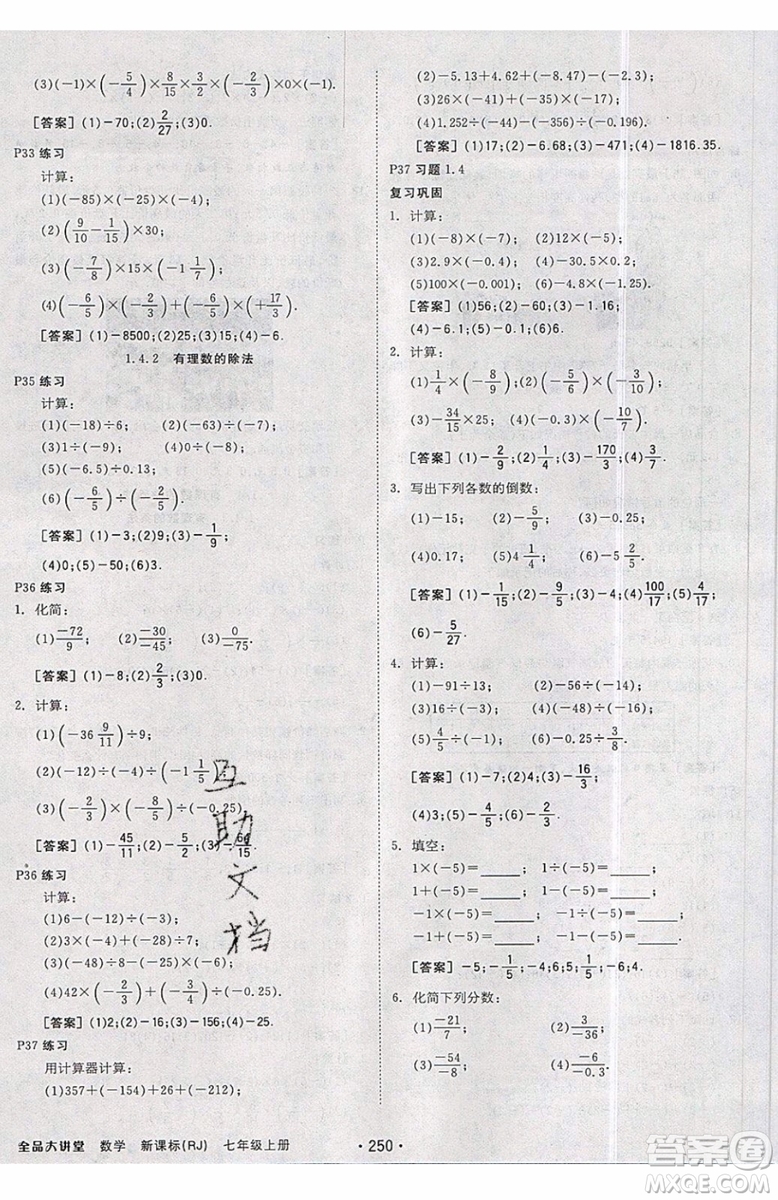 (3)(-1)×(-5/4)×8/15×3/2×(-2/3)×0×(-1).
[答案](1)-70;(2)2/27;(3)0.
P33 练习
计算:
(1)(-85)×(-25)×(-4);
(2)(9/10-1/15)×30;
(3)(-7/8)×15×(-1 1/7);
(4)(-6/5)×(-2/3)+(-6/5)×(+17/3).
[答案](1)-8500;(2)25;(3)15;(4)-6.
1.4.2 有理数的除法
P35 练习
计算:
(1)(-18)÷6; (2)(-63)÷(-7);
(3)1÷(-9); (4)0÷(-8);
(5)(-6.5)÷0.13;
(6)(-6/5)÷(-2/5).
[答案](1)-3;(2)9;(3)-1/9;
(4)0;(5)-50;(6)3.
P36 练习
1. 化简:
(1)-72/9; (2)-30/-45; (3)0/-75.
[答案](1)-8;(2)2/3;(3)0.
2. 计算:
(1)(-36 9/11)÷9;
(2)(-12)÷(-4)÷(-1 1/5
(3)(-2/3)×(-8/5)÷(-0.25).
[答案](1)-45/11;(2)-5/2;(3)-64/15.
P36 练习
计算:
(1)6-(-12)÷(-3);
(2)3×(-4)+(-28)÷7;
(3)(-48)÷8-(-25)×(-6);
(4)42×(-2/3)+(-3/4)÷(-0.25).
[答案](1)2;(2)-16;(3)-156;(4)-25.
P37 练习
用计算器计算:
(1)357+(-154)+26+(-212);
互助文档
(2)-5.13+4.62+(-8.47)-(-2.3);
(3)26×(-41)+(-35)×(-17);
(4)1.252÷(-44)-(-356)÷(-0.196).
[答案](1)17;(2)-6.68;(3)-471;(4)-1816.35.
P37 习题1.4
复习巩固
1. 计算:
(1)(-8)×(-7); (2)12×(-5);
(3)2.9×(-0.4); (4)-30.5×0.2;
(5)100×(-0.001); (6)-4.8×(-1.25).
[答案](1)56;(2)-60;(3)-1.16;
(4)-6.1;(5)-0.1;(6)6.
2. 计算:
(1)1/4×(-8/9); (2)(-5/6)×(-3/10);
(3)-34/15×25; (4)(-0.3)×(-10/7).
[答案](1)-2/9;(2)1/4;(3)-170/3;(4)3/7.
3. 写出下列各数的倒数:
(1)-15; (2)-5/9; (3)-0.25;
(4)0.17; (5)4 1/4; (6)-5 2/5.
[答案](1)-1/15;(2)-9/5;(3)-4;(4)100/17;(5)4/17;
(6)-5/27.
4. 计算:
(1)-91÷13; (2)-56÷(-14);
(3)16÷(-3); (4)(-48)÷(-16);
(5)4/5÷(-1); (6)-0.25÷3/8.
[答案](1)-7;(2)4;(3)-16/3;
(4)3;(5)-4/5;(6)-2/3.
5. 填空:
1×(-5)=____; 1÷(-5)=____;
1+(-5)=____; 1-(-5)=____;
-1×(-5)=____; -1÷(-5)=____;
-1+(-5)=____; -1-(-5)=____.
[答案]-5;-1/5;-4;6;5;1/5;-6;4.
6. 化简下列分数:
(1)-21/7; (2)3/-36;
(3)-54/-8; (4)-6/-0.3.
全品大讲堂 数学 新课标(RJ) 七年级上册 ·250·